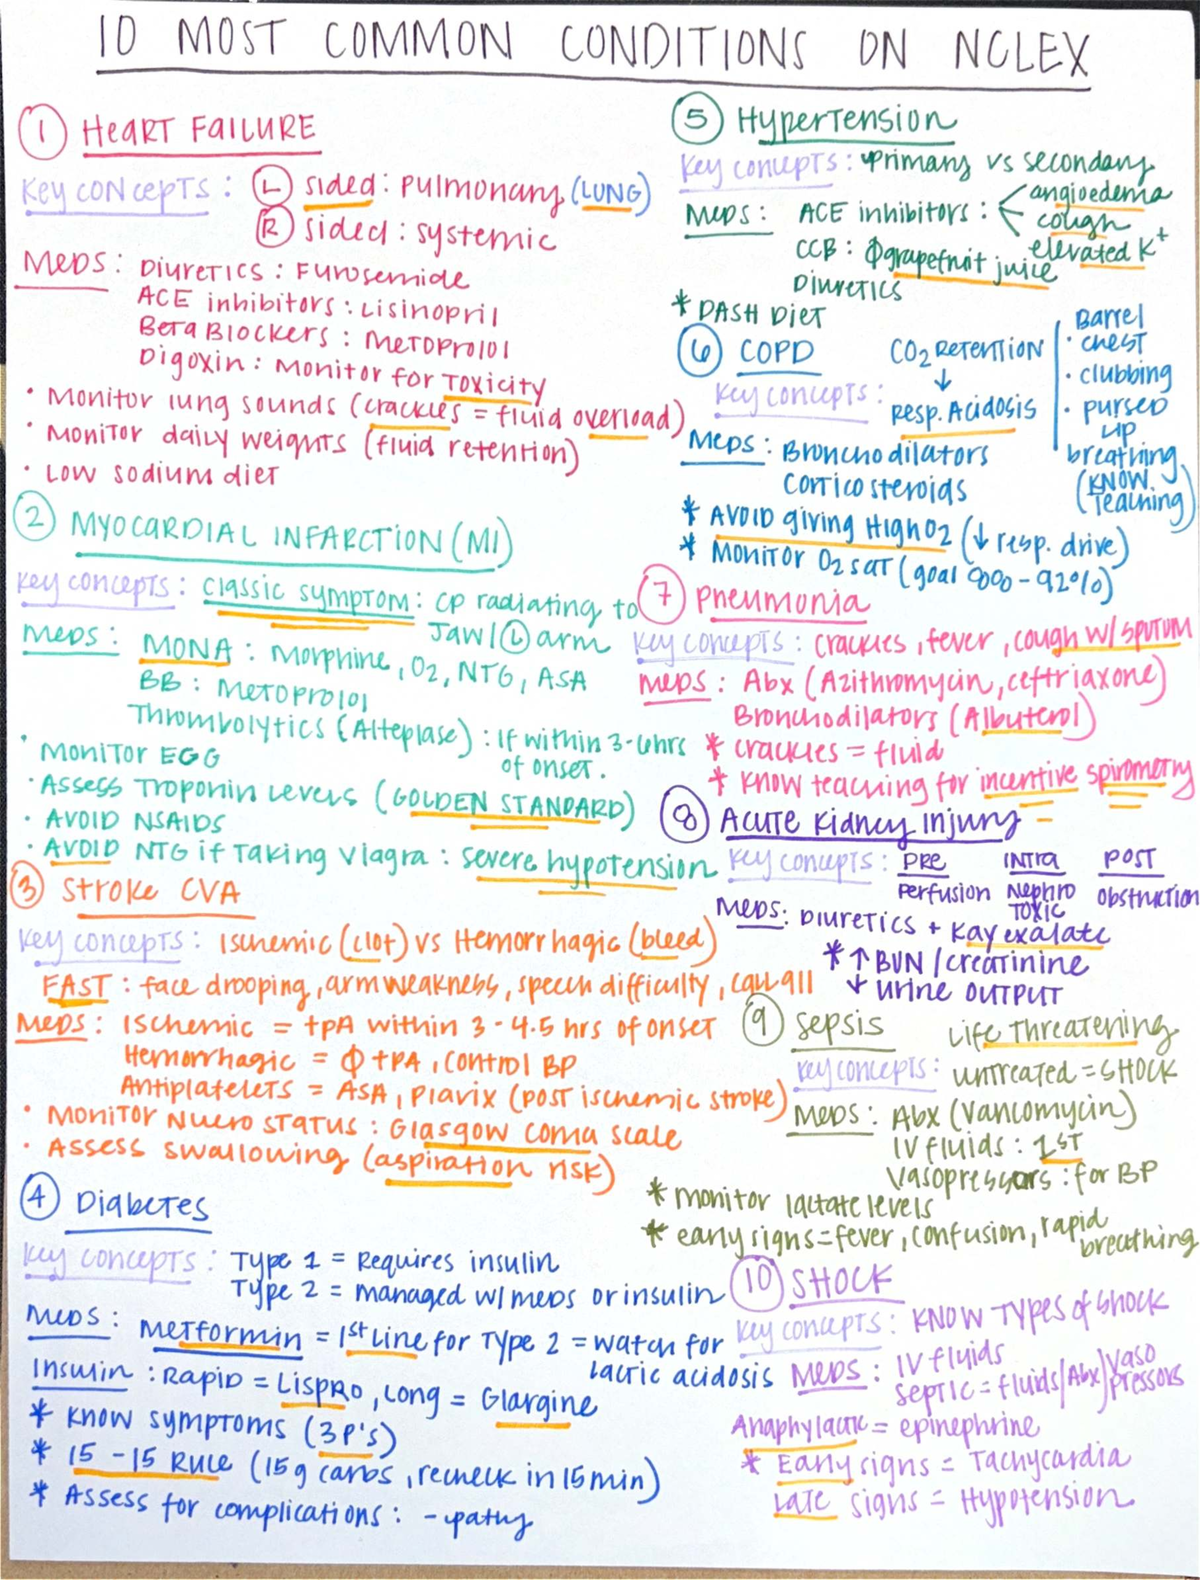 10 MOST COMMON CONDITIONS ON NCLEX
① HEART FAILURE
KEY CONCEPTS : Ⓛ sided : pulmonary (LUNG)
Ⓡ sided : systemic
MEDS : Diuretics : Furosemide
ACE inhibitors : Lisinopril
Beta Blockers : Metoprolol
Digoxin : Monitor for TOXICITY
• Monitor lung sounds (crackles = fluid overload)
• Monitor daily weights (fluid retention)
• Low sodium diet
② MYOCARDIAL INFARCTION (MI)
Key concepts : Classic symptom : CP radiating to
Jaw/Ⓛ arm
MEDS : MONA : Morphine, O2, NTG, ASA
BB : Metoprolol
Thrombolytics (Alteplase) : If within 3-6hrs
of onset.
• Monitor EGG
• Assess Troponin Levels (GOLDEN STANDARD)
• AVOID NSAIDS
• AVOID NTG if Taking Viagra : severe hypotension
③ Stroke CVA
Key concepts : Ischemic (clot) vs Hemorrhagic (bleed)
FAST : face drooping, arm weakness, speech difficulty, call 911
MEDS : Ischemic = tPA within 3-4.5 hrs of onset
Hemorrhagic = Φ tPA, control BP
Antiplatelets = ASA, Plavix (post ischemic stroke)
• Monitor Nuero status : Glasgow coma scale
• Assess swallowing (aspiration risk)
④ Diabetes
Key concepts : Type 1 = Requires insulin
Type 2 = managed w/ meds or insulin
MEDS : Metformin = 1st Line for Type 2 = watch for
lactic acidosis
Insulin : Rapid = Lispro, Long = Glargine
* Know symptoms (3P's)
* 15-15 Rule (15g carbs, recheck in 15min)
* Assess for complications : -pathy
⑤ Hypertension
Key concepts : Primary vs secondary
MEDS : ACE inhibitors : < angioedema
cough
elevated K+
CCB : Φ grapefruit juice
Diuretics
* DASH Diet
⑥ COPD
Key concepts : CO2 RETENTION
↓
Resp. Acidosis
Barrel
• chest
• clubbing
• pursed
up
breathing
(KNOW
Teaching)
MEDS : Bronchodilators
Corticosteroids
* AVOID giving High O2 (↓ resp. drive)
* Monitor O2 sat (goal 90%-92%)
⑦ Pneumonia
Key concepts : crackles, fever, cough w/ sputum
MEDS : Abx (Azithromycin, ceftriaxone)
Bronchodilators (Albuterol)
* crackles = fluid
* Know teaching for incentive spirometry
⑧ Acute Kidney Injury
Key concepts : PRE INTRA POST
Perfusion Nephro Obstruction
TOXIC
MEDS : Diuretics + Kayexalate
* ↑ BUN/creatinine
↓ urine OUTPUT
⑨ Sepsis Life Threatening
Key concepts : untreated = SHOCK
MEDS : Abx (Vancomycin)
IV fluids : 1ST
Vasopressors : for BP
* monitor lactate levels
* early signs = fever, confusion, rapid
breathing
⑩ SHOCK
Key concepts : KNOW TYPES of Shock
MEDS : IV fluids
Septic = fluids/Abx/Vaso
pressors
Anaphylactic = epinephrine
* Early signs = Tachycardia
Late signs = Hypotension